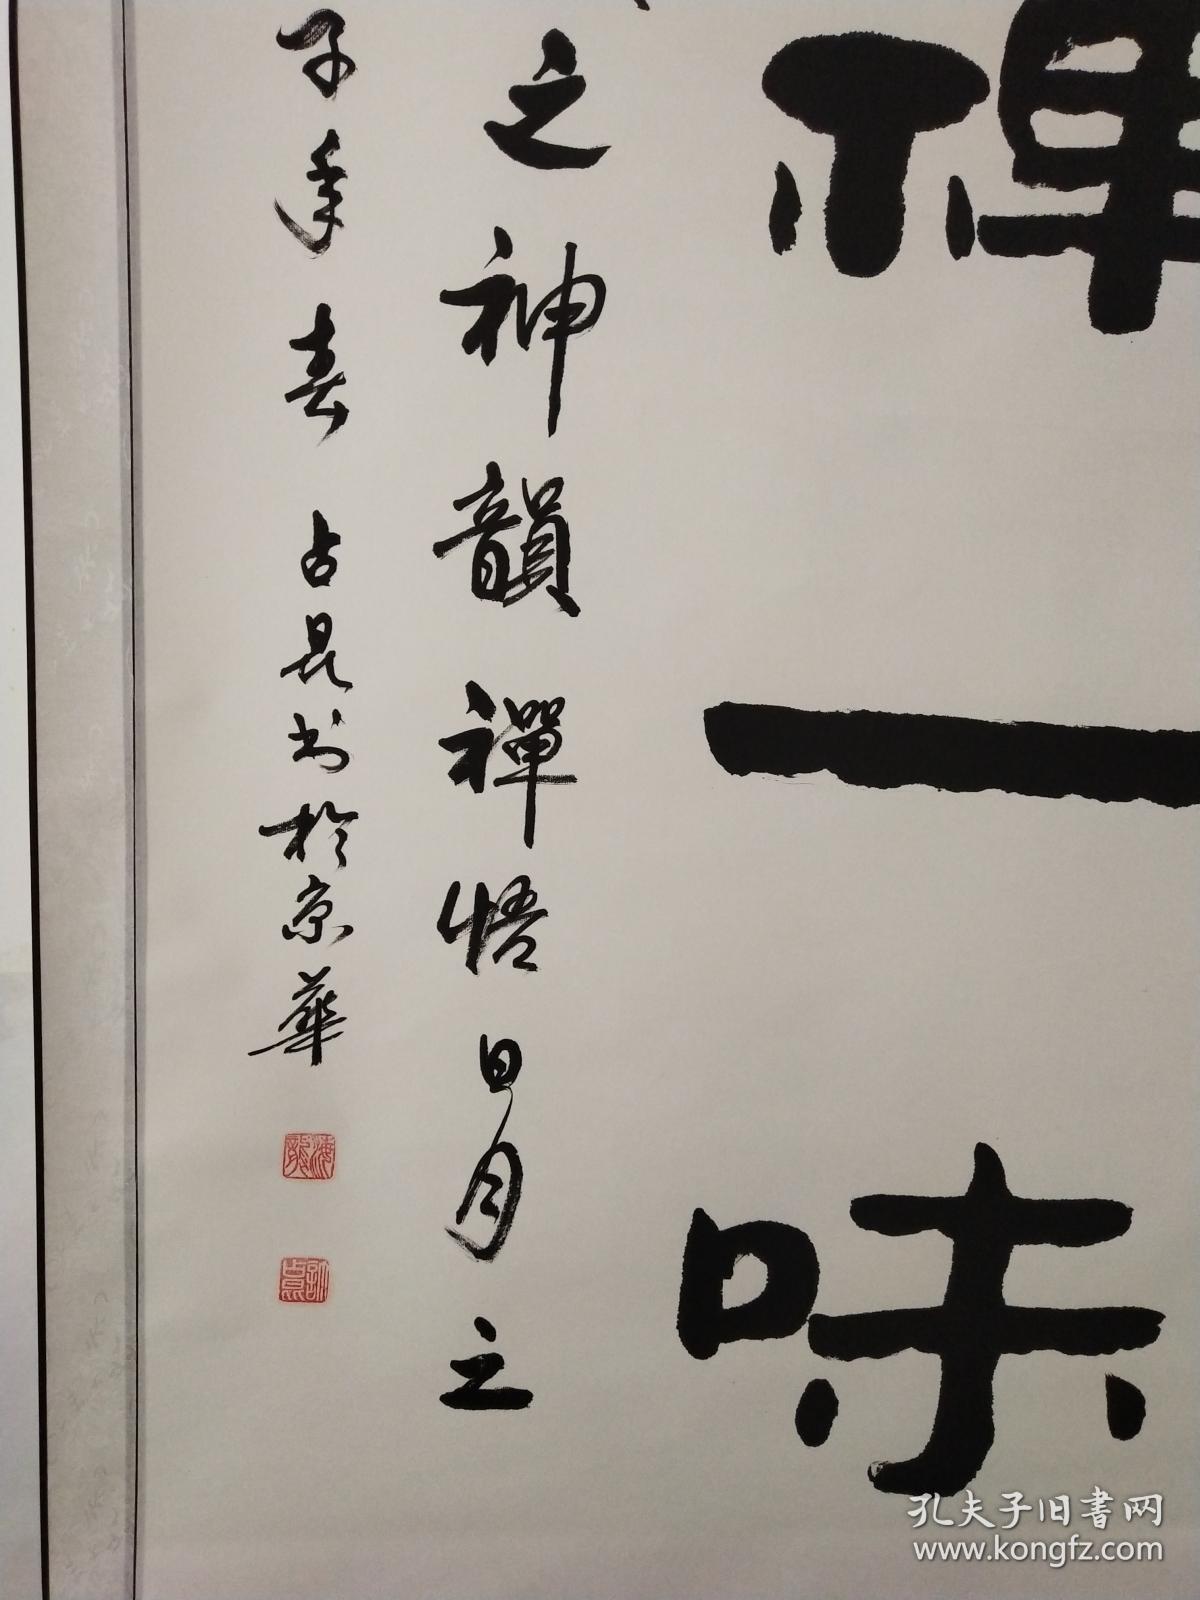 禪一味
之神韻禪悟日月之
子年春占昆书於京華
孔夫子旧書网
www.kongfz.com